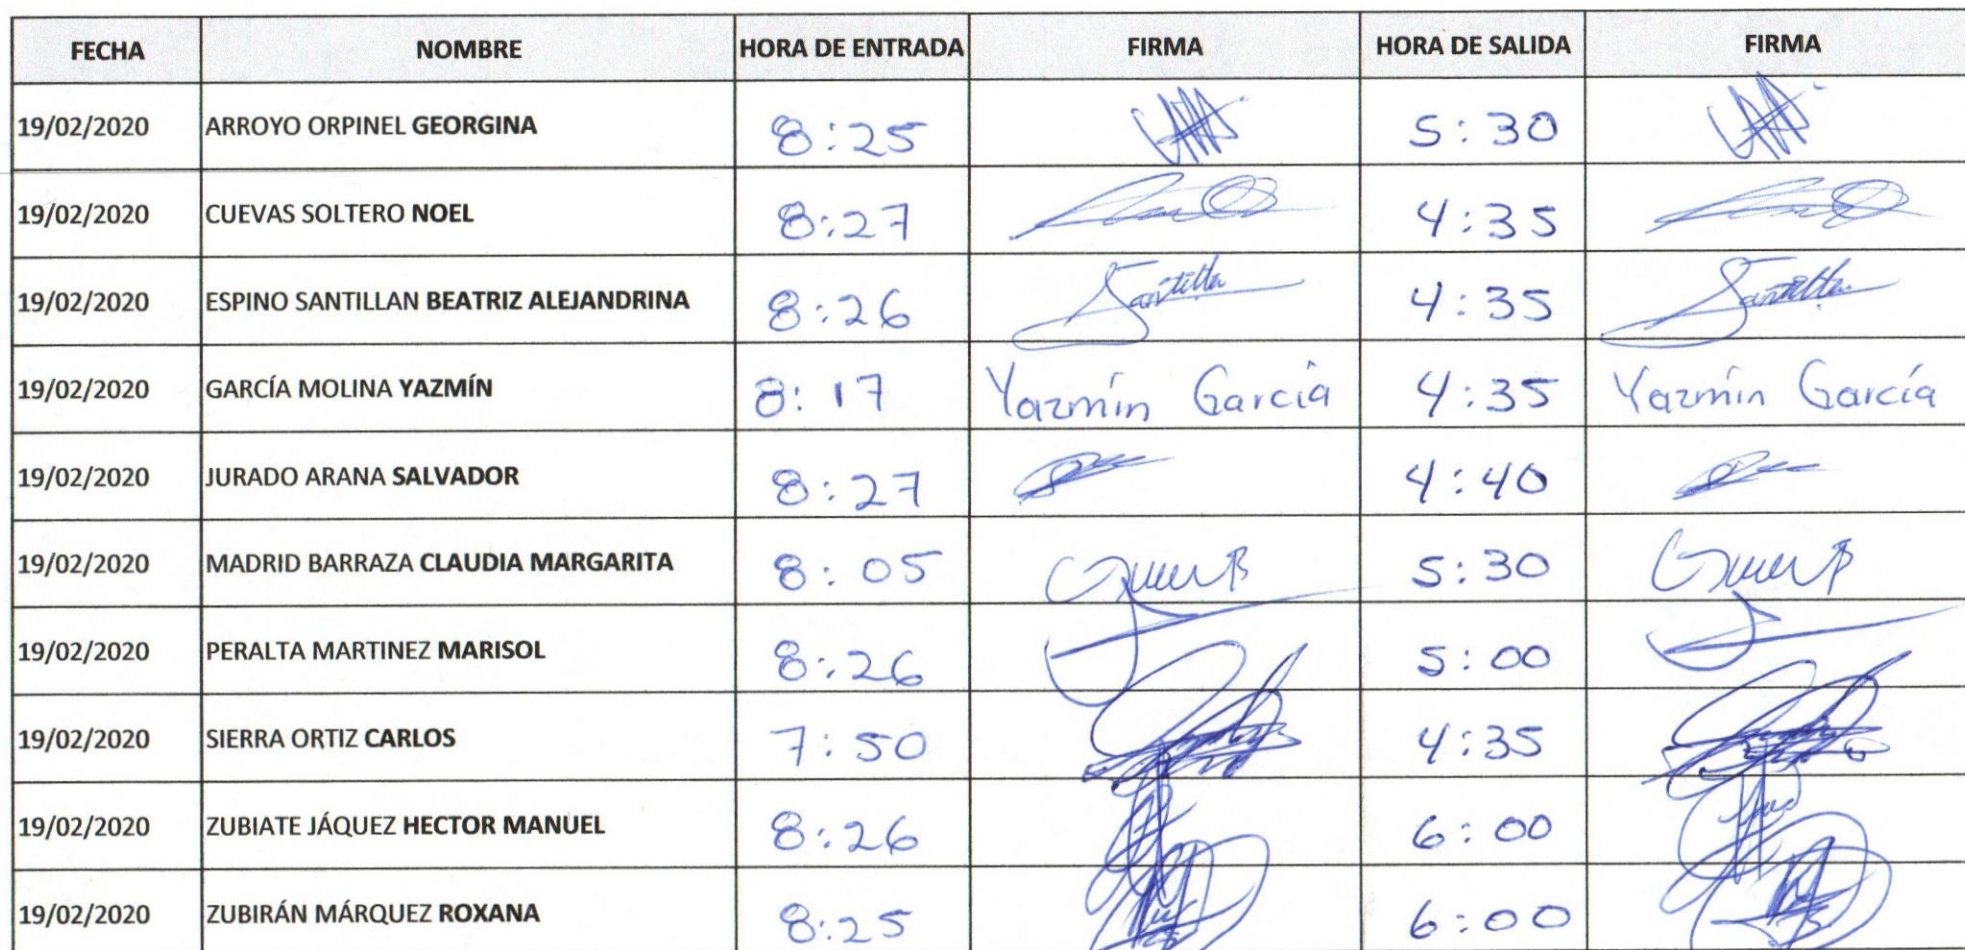 FECHA NOMBRE HORA DE ENTRADA FIRMA HORA DE SALIDA FIRMA
19/02/2020 ARROYO ORPINEL GEORGINA 8:25 5:30
19/02/2020 CUEVAS SOLTERO NOEL 8:27 4:35
19/02/2020 ESPINO SANTILLAN BEATRIZ ALEJANDRINA 8:26 Santillan 4:35 Santillan
19/02/2020 GARCÍA MOLINA YAZMÍN 8:17 Yazmín García 4:35 Yazmín García
19/02/2020 JURADO ARANA SALVADOR 8:27 4:40
19/02/2020 MADRID BARRAZA CLAUDIA MARGARITA 8:05 5:30
19/02/2020 PERALTA MARTINEZ MARISOL 8:26 5:00
19/02/2020 SIERRA ORTIZ CARLOS 7:50 4:35
19/02/2020 ZUBIATE JÁQUEZ HECTOR MANUEL 8:26 6:00
19/02/2020 ZUBIRÁN MÁRQUEZ ROXANA 8:25 6:00